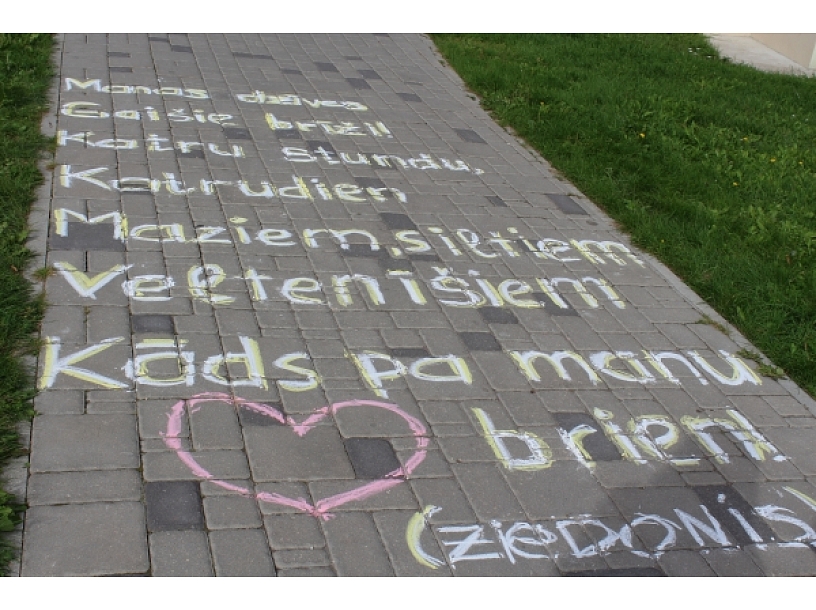 Manas dzīves
Gaišie brīži!
Katru stundu,
Katrudien
Maziem, siltiem
Veļtenīšiem
Kāds pa manu
brien!
(ZIEDONIS)